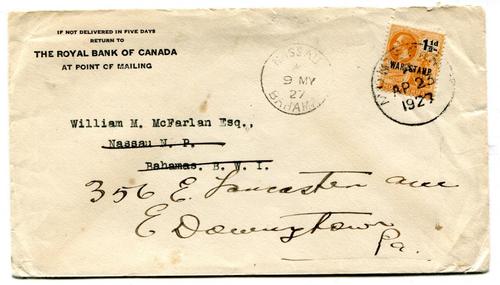 IF NOT DELIVERED IN FIVE DAYS
RETURN TO
THE ROYAL BANK OF CANADA
AT POINT OF MAILING
NASSAU
9 MY
27
BAHAMAS
1½d
WAR STAMP
AP 25
1927
William M. McFarlan Esq.,
Nassau N. P.
Bahamas. B. W. I.
356 E. Lancaster ave
E Downingtown
Pa.